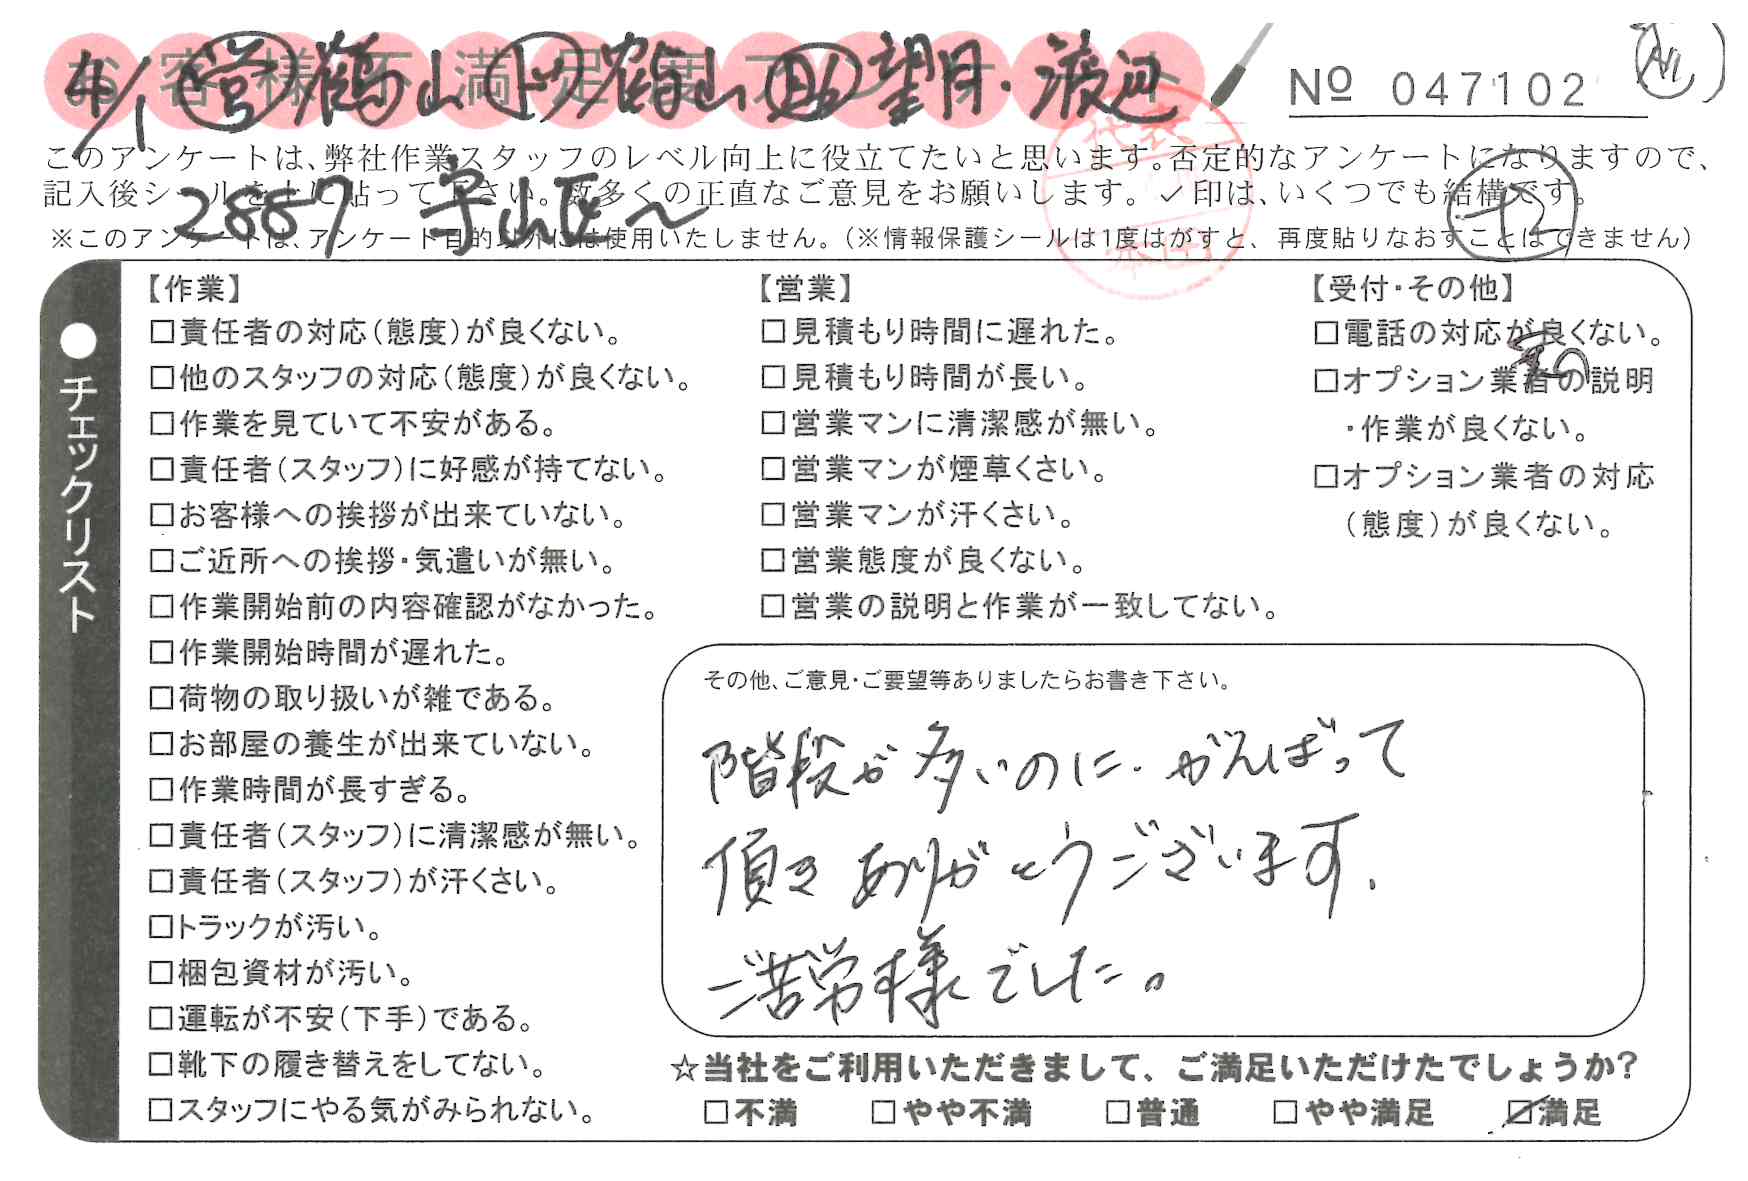 お客様不満足度アンケート
4/1 営 鶴山 ト 鶴山 助 望月・渡辺
No 047102
このアンケートは、弊社作業スタッフのレベル向上に役立てたいと思います。否定的なアンケートになりますので、
記入後シールを上に貼って下さい。数多くの正直なご意見をお願いします。✓印は、いくつでも結構です。
2887 守山区〜
+2
※このアンケートは、アンケート目的以外には使用いたしません。(※情報保護シールは1度はがすと、再度貼りなおすことはできません)
代表
本田
●チェックリスト
【作業】
□責任者の対応(態度)が良くない。
□他のスタッフの対応(態度)が良くない。
□作業を見ていて不安がある。
□責任者(スタッフ)に好感が持てない。
□お客様への挨拶が出来ていない。
□ご近所への挨拶・気遣いが無い。
□作業開始前の内容確認がなかった。
□作業開始時間が遅れた。
□荷物の取り扱いが雑である。
□お部屋の養生が出来ていない。
□作業時間が長すぎる。
□責任者(スタッフ)に清潔感が無い。
□責任者(スタッフ)が汗くさい。
□トラックが汚い。
□梱包資材が汚い。
□運転が不安(下手)である。
□靴下の履き替えをしてない。
□スタッフにやる気がみられない。
【営業】
□見積もり時間に遅れた。
□見積もり時間が長い。
□営業マンに清潔感が無い。
□営業マンが煙草くさい。
□営業マンが汗くさい。
□営業態度が良くない。
□営業の説明と作業が一致してない。
【受付・その他】
□電話の対応が良くない。
□オプション業者の説明
・作業が良くない。
□オプション業者の対応
(態度)が良くない。
その他、ご意見・ご要望等ありましたらお書き下さい。
階段が多いのに、がんばって
頂きありがとうございます。
ご苦労様でした。
☆当社をご利用いただきまして、ご満足いただけたでしょうか?
□不満 □やや不満 □普通 □やや満足 ☑満足